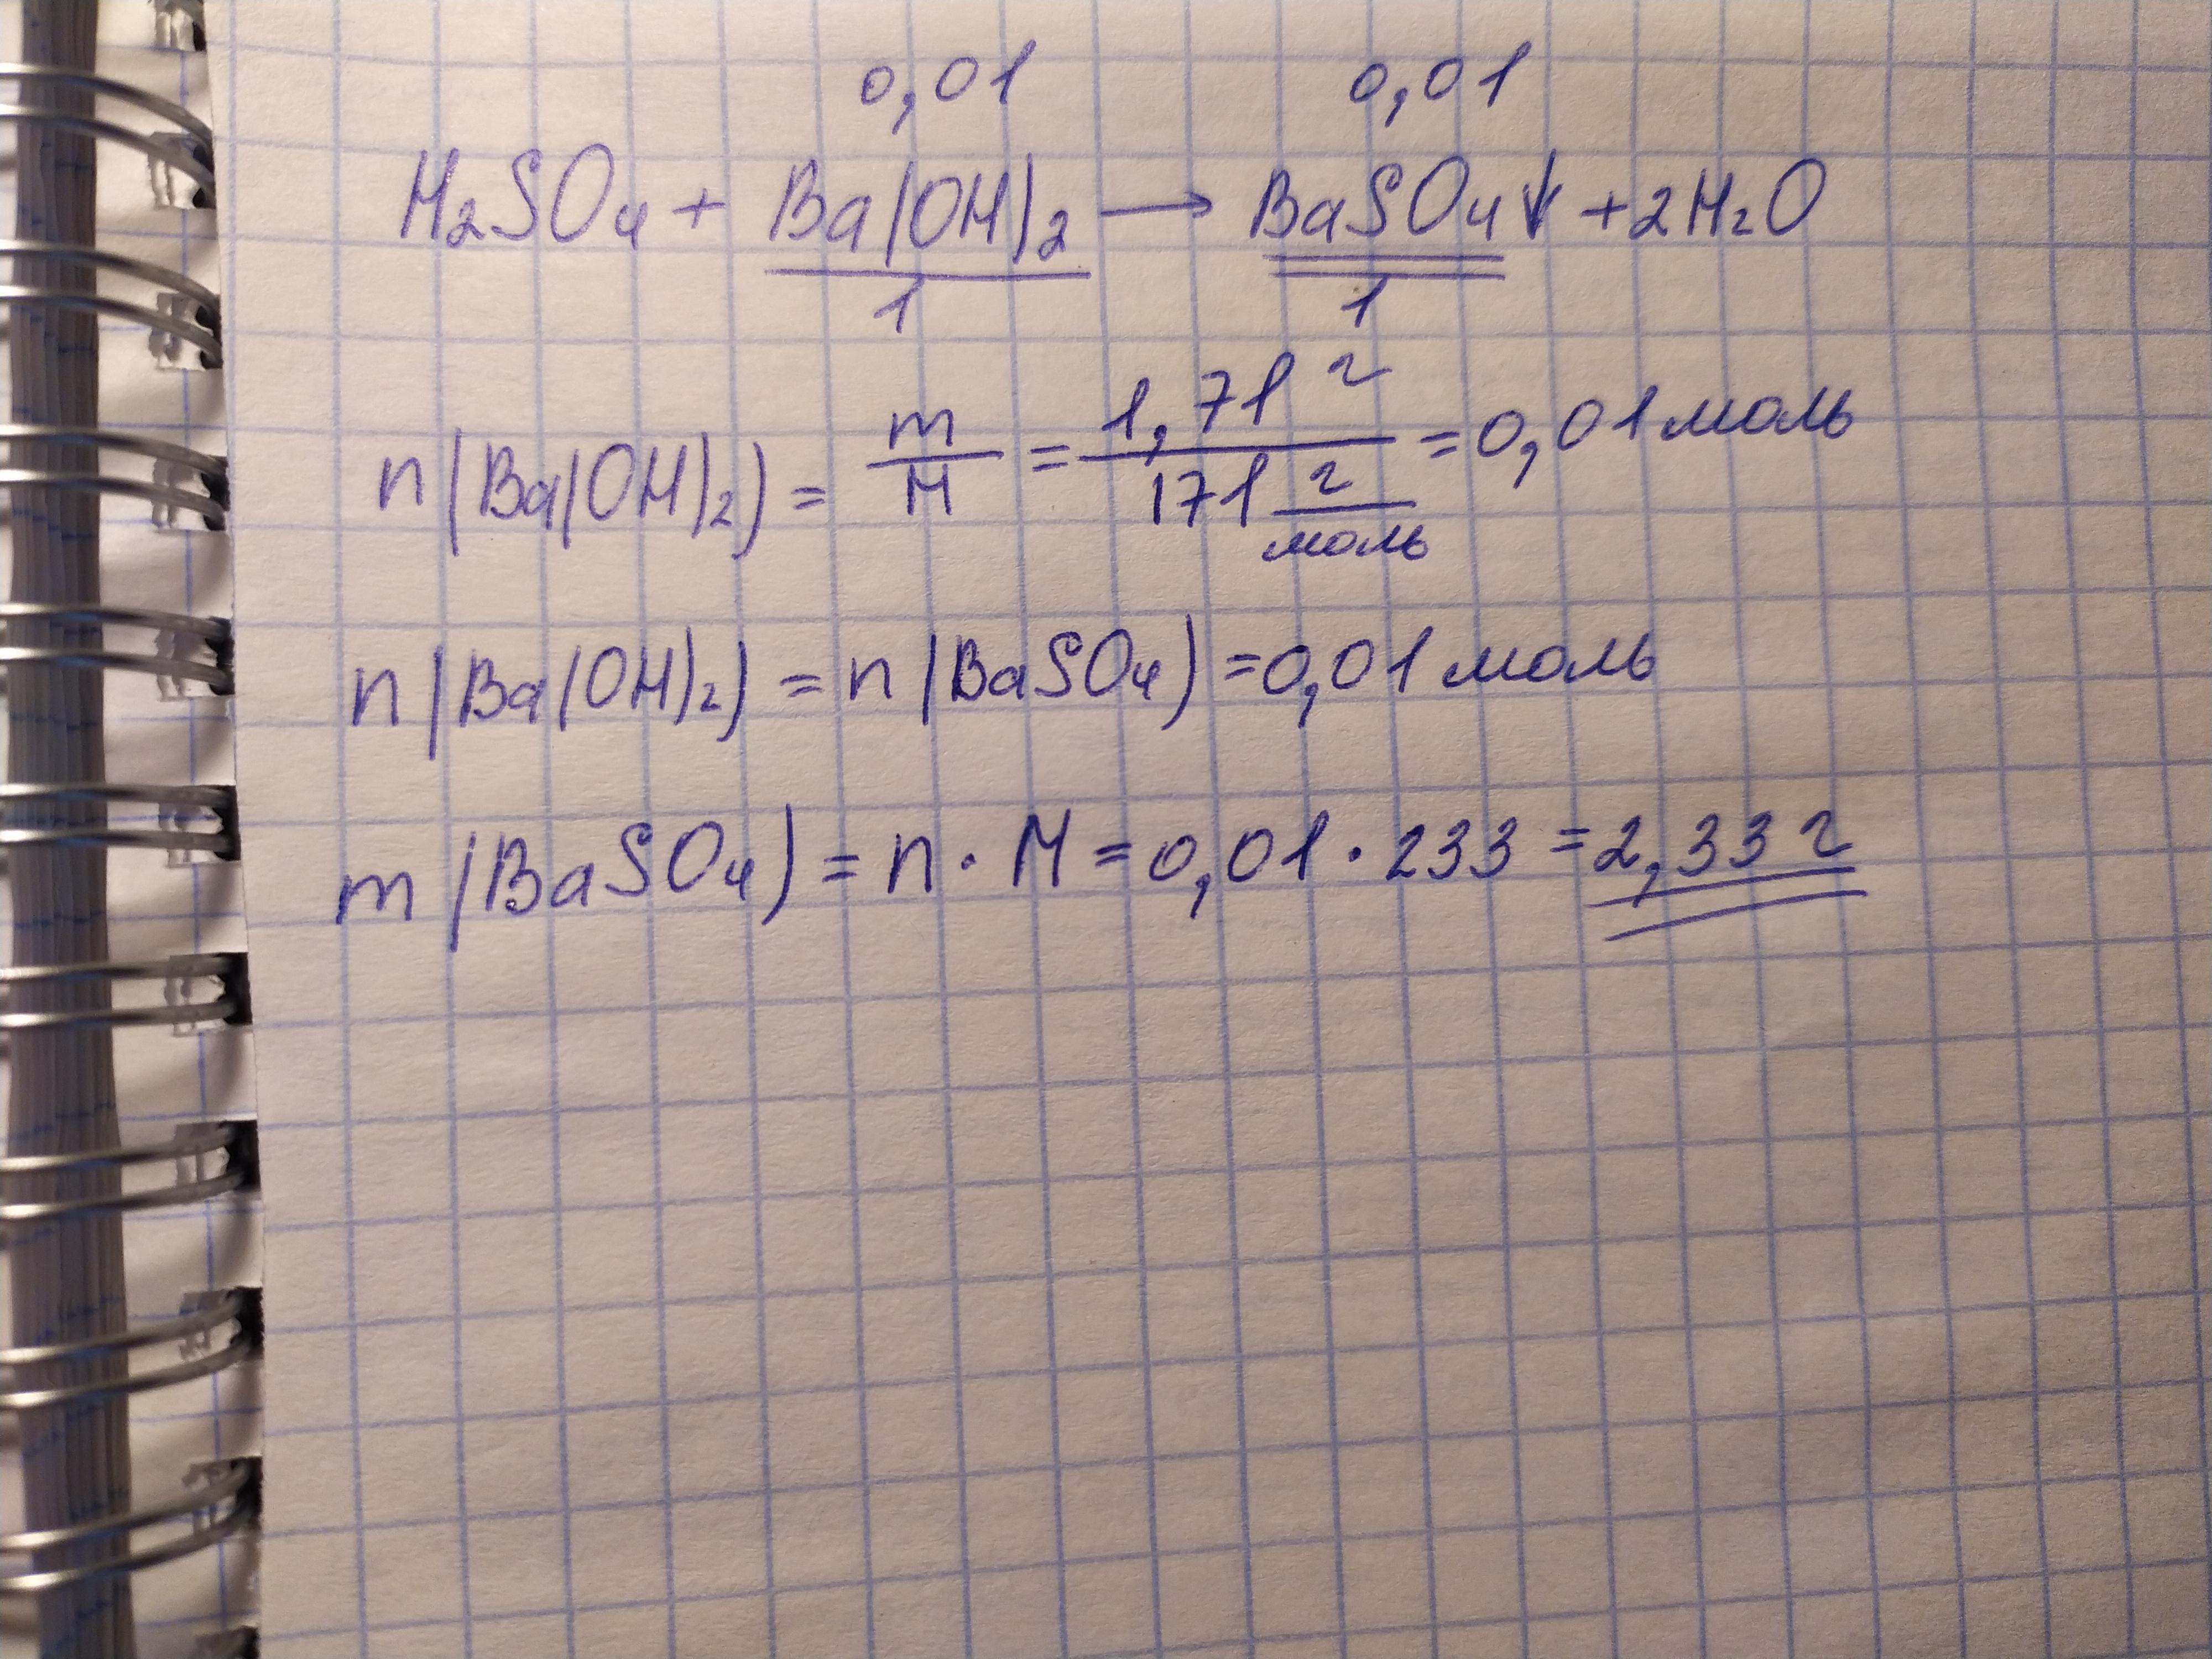 0,01 0,01
H₂SO₄ + Ba(OH)₂ → BaSO₄↓ + 2H₂O
1 1
n(Ba(OH)₂) = m/M = 1,71 г / 171 г/моль = 0,01 моль
n(Ba(OH)₂) = n(BaSO₄) = 0,01 моль
m(BaSO₄) = n · M = 0,01 · 233 = 2,33 г